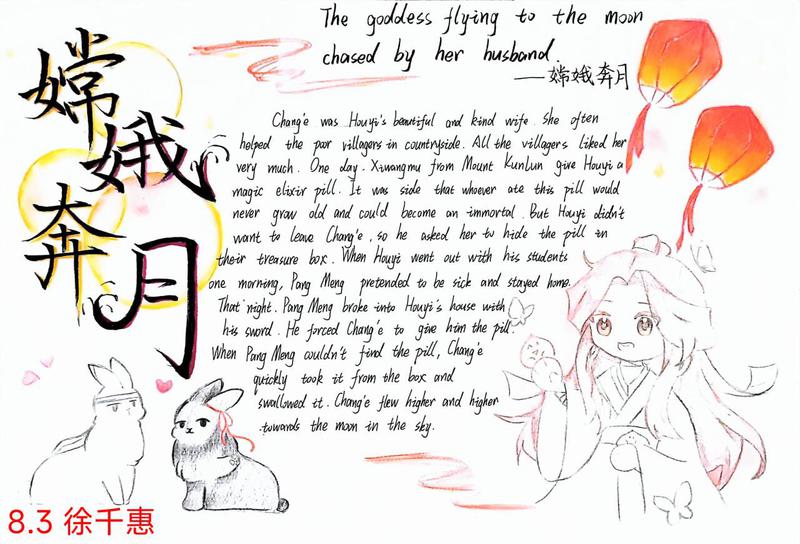 嫦娥奔月
The goddess flying to the moon
chased by her husband.
——嫦娥奔月
Chang'e was Houyi's beautiful and kind wife. She often
helped the poor villagers in countryside. All the villagers liked her
very much. One day. Xiwangmu from Mount Kunlun give Houyi a
magic elixir pill. It was side that whoever ate this pill would
never grow old and could become an immortal. But Houyi didn't
want to leave Chang'e, so he asked her to hide the pill in
their treasure box. When Houyi went out with his students
one morning, Pang Meng pretended to be sick and stayed home.
That night. Pang Meng broke into Houyi's house with
his sword. He forced Chang'e to give him the pill.
When Pang Meng couldn't find the pill, Chang'e
quickly took it from the box and
swallowed it. Chang'e flew higher and higher
towards the moon in the sky.
8.3 徐千惠